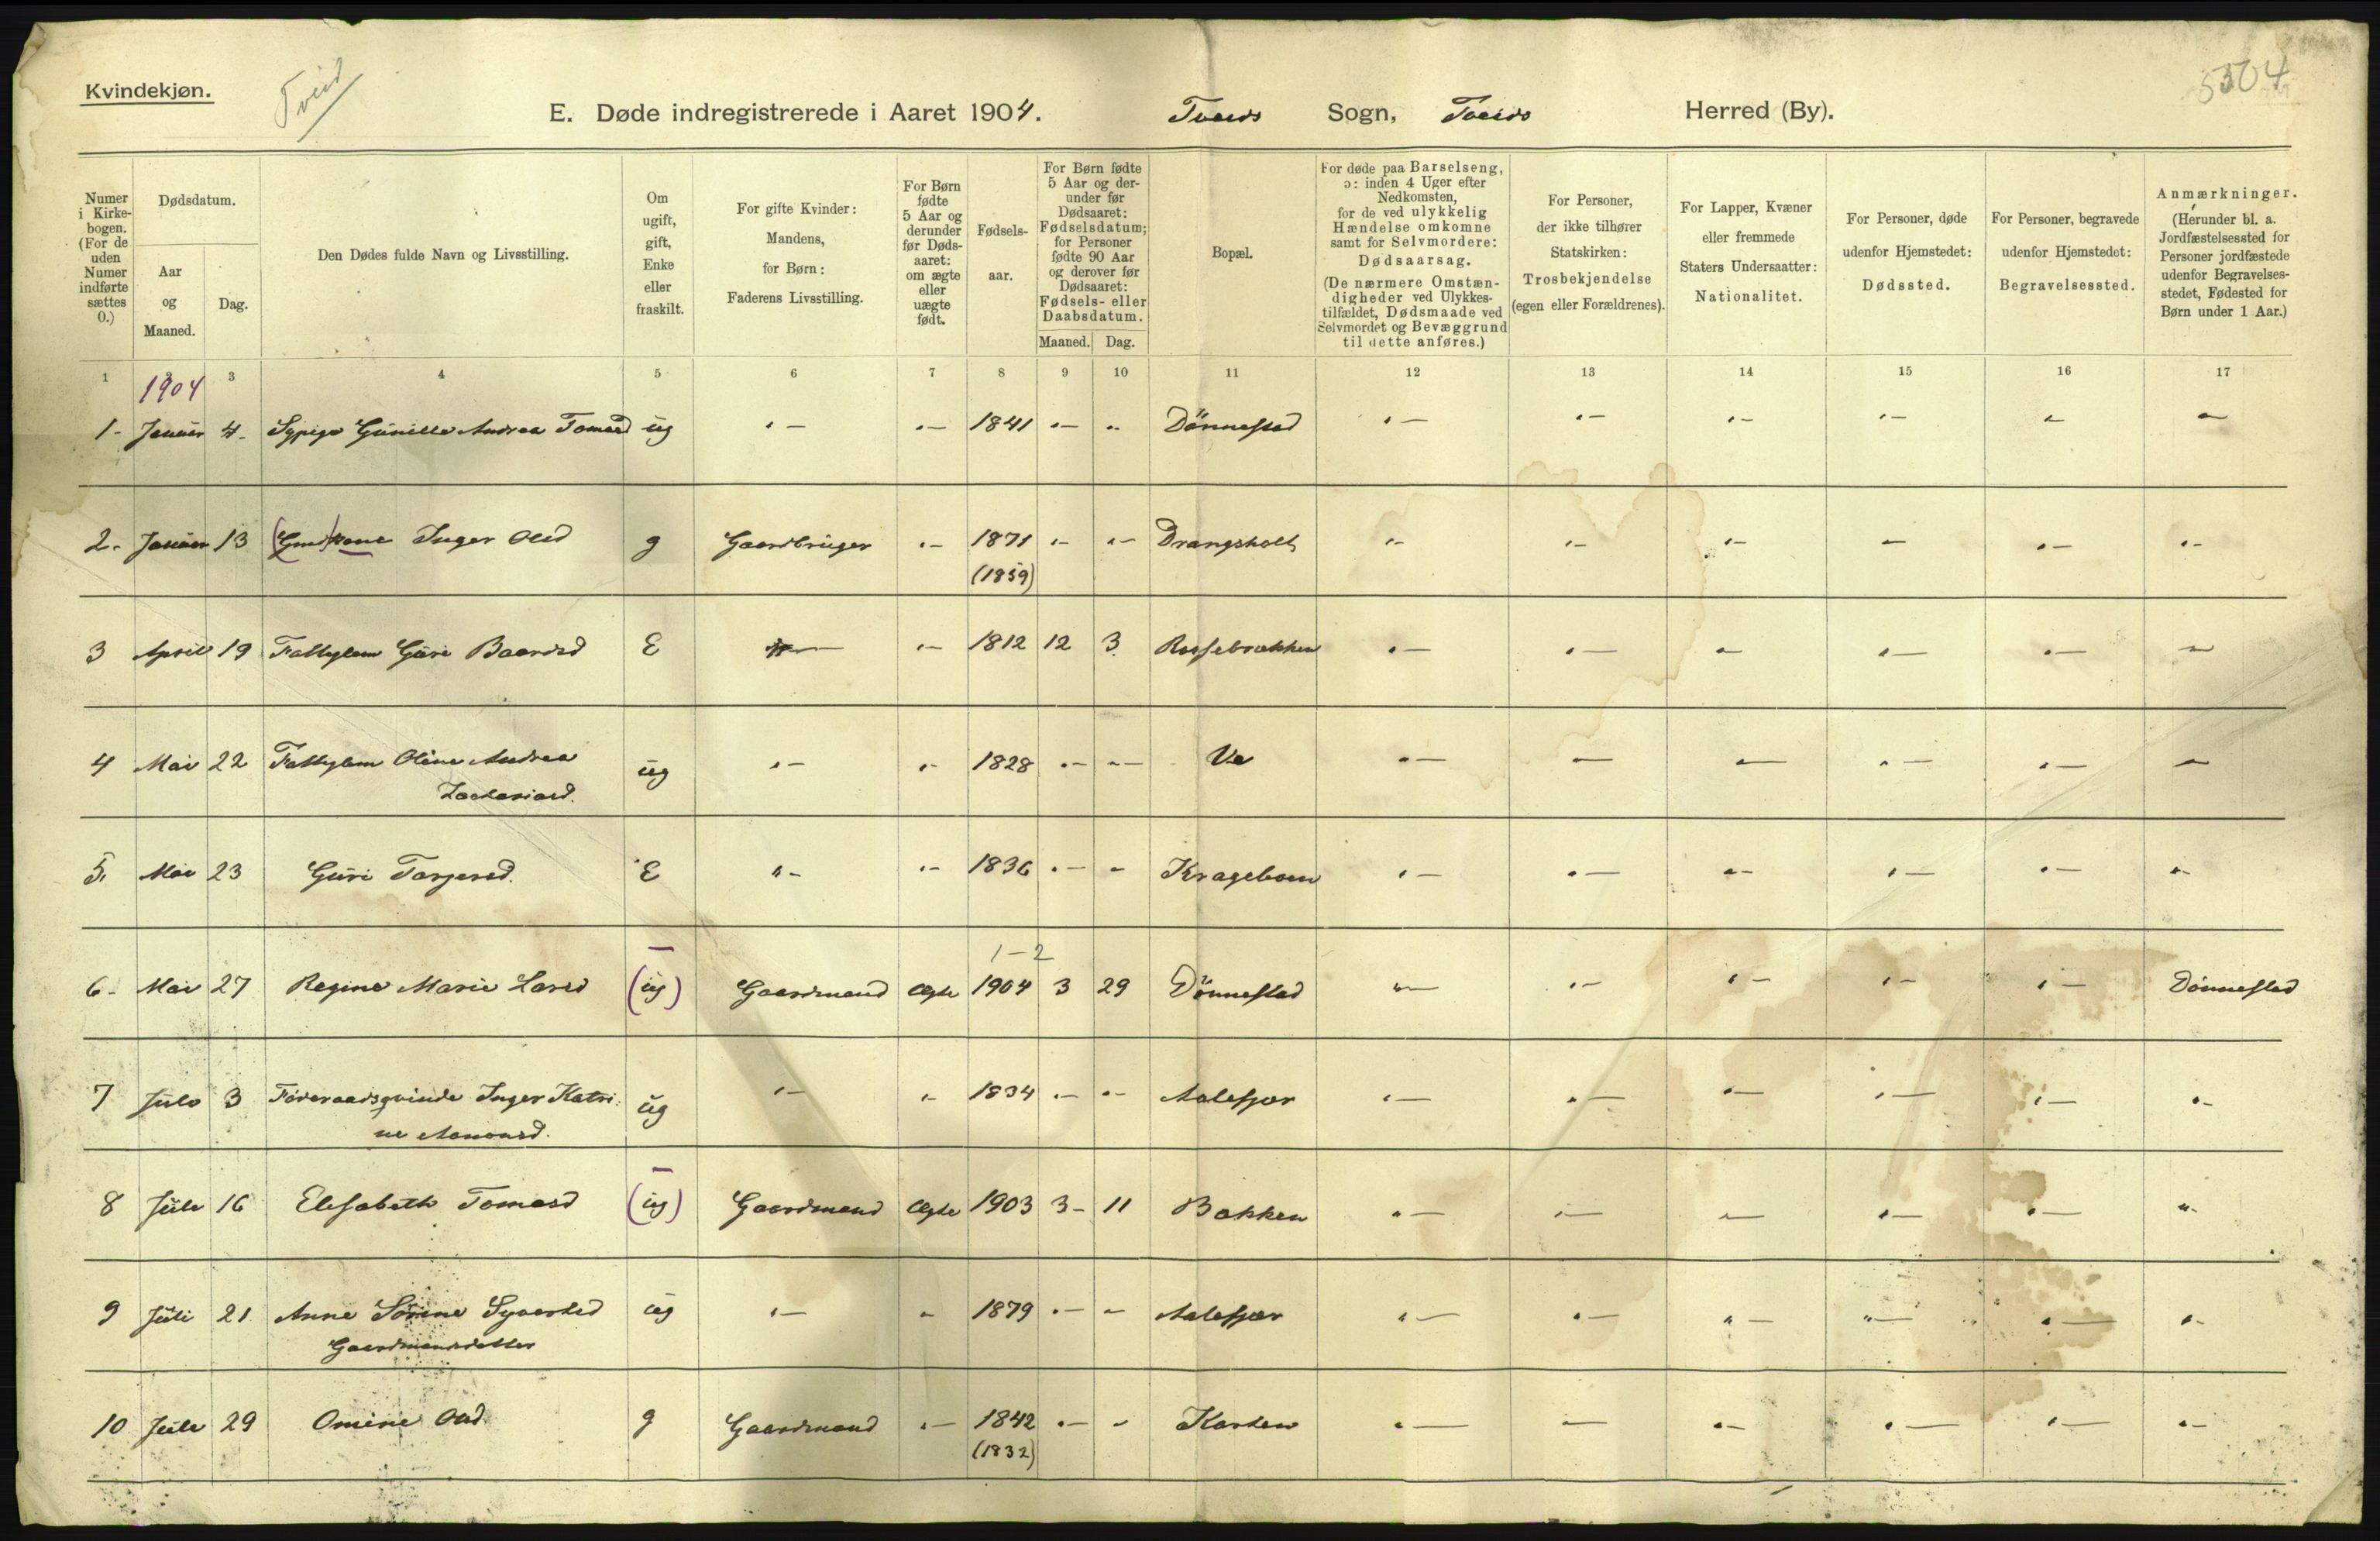 Kvindekjøn.
Tveid
5304
E. Døde indregistrerede i Aaret 1904. Tveids Sogn, Tveids Herred (By).
Numer i Kirkebogen. (For de uden Numer indførte sættes 0.)
Dødsdatum.
Aar og Maaned.
Dag.
Den Dødes fulde Navn og Livsstilling.
Om ugift, gift, Enke eller fraskilt.
For gifte Kvinder: Mandens, for Børn: Faderens Livsstilling.
For Børn fødte 5 Aar og derunder før Dødsaaret: om ægte eller uægte født.
Fødselsaar.
For Børn fødte 5 Aar og derunder før Dødsaaret: Fødselsdatum; for Personer fødte 90 Aar og derover før Dødsaaret: Fødsels- eller Daabsdatum.
Maaned. Dag.
Bopæl.
For døde paa Barselseng, ɔ: inden 4 Uger efter Nedkomsten, for de ved ulykkelig Hændelse omkomne samt for Selvmordere: Dødsaarsag.
(De nærmere Omstændigheder ved Ulykkestilfældet, Dødsmaade ved Selvmordet og Bevæggrund til dette anføres.)
For Personer, der ikke tilhører Statskirken: Trosbekjendelse (egen eller Forældrenes).
For Lapper, Kvæner eller fremmede Staters Undersaatter: Nationalitet.
For Personer, døde udenfor Hjemstedet: Dødssted.
For Personer, begravede udenfor Hjemstedet: Begravelsessted.
Anmærkninger. (Herunder bl. a. Jordfæstelsessted for Personer jordfæstede udenfor Begravelsesstedet, Fødested for Børn under 1 Aar.)
1 2 3 4 5 6 7 8 9 10 11 12 13 14 15 16 17
1904
1- Januar 4- Sypige Gunille Andrea Tomasd ug "- "- 1841 "- " Dönnestad "- "- "- "- "- "-
2- Januar 13 (Gmd)kone Inger Olsd g Gaardbruger "- 1871 "- "- Drangsholt "- "- "- "- "- "-
(1859)
3 April 19 Fattiglem Guri Baardsd E "- "- 1812 12 3 Rossebrækken "- "- "- "- "- "-
4 Mai 22 Fattiglem Oline Andrea ug "- "- 1828 "- "- Ve "- "- "- "- "- "-
Zachariasd.
5, Mai 23 Guri Torjersd. E "- "- 1836 "- "- Krageboen "- "- "- "- "- "-
1-2
6- Mai 27 Regine Marie Larsd (ug) Gaardmand Ægte 1904 3 29 Dönnestad "- "- "- "- "- Dönnestad
7 Juli 3 Föderaadsqvinde Inger Katri- ug "- "- 1834 "- "- Aalefjær "- "- "- "- "- "-
ne Aanonsd.
8 Juli 16 Elisabeth Tomasd (ug) Gaardmand Ægte 1903 3- 11 Bakken "- "- "- "- "- "-
9 Juli 21 Anne Sörine Syvertsd ug "- "- 1879 "- "- Aalefjær "- "- "- "- "- "-
Gaardmandsdatter
10 Juli 29 Omine Olsd g Gaardmand "- 1842 "- "- Kosten "- "- "- "- "- "-
(1832)